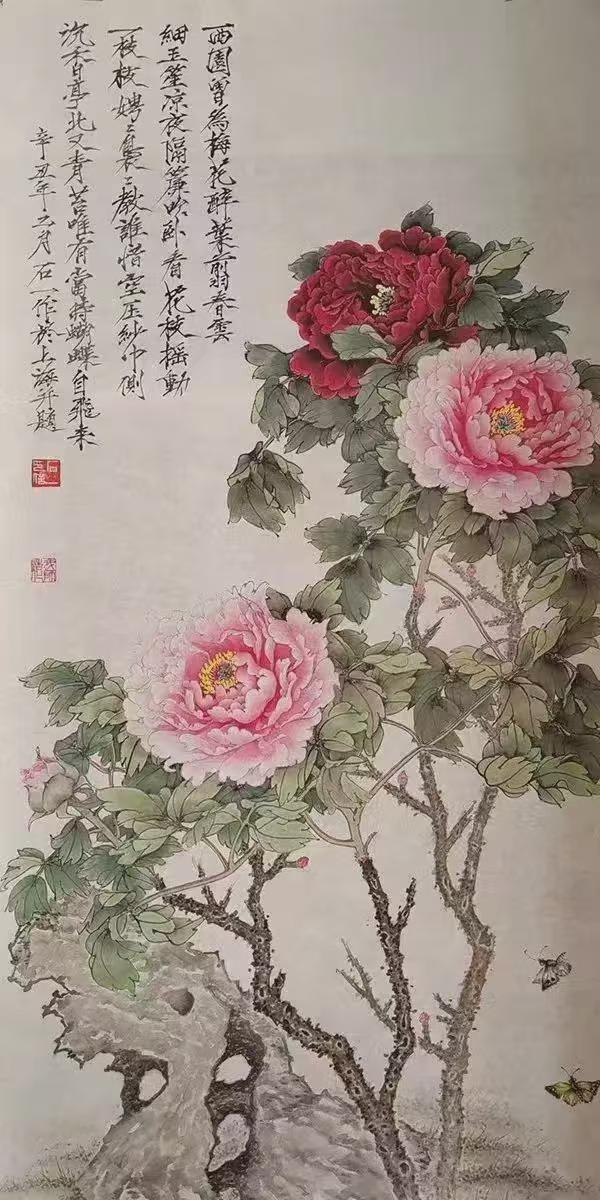 西園曾為梅花醉葉翦春雲
細玉笙凉夜隔簾吹卧看花枝摇動
一枝枝娉々裊々教誰惜空压紗巾側
沉香亭北又青苔唯有當時蝴蝶自飛来
辛丑年月石一作於上海并題